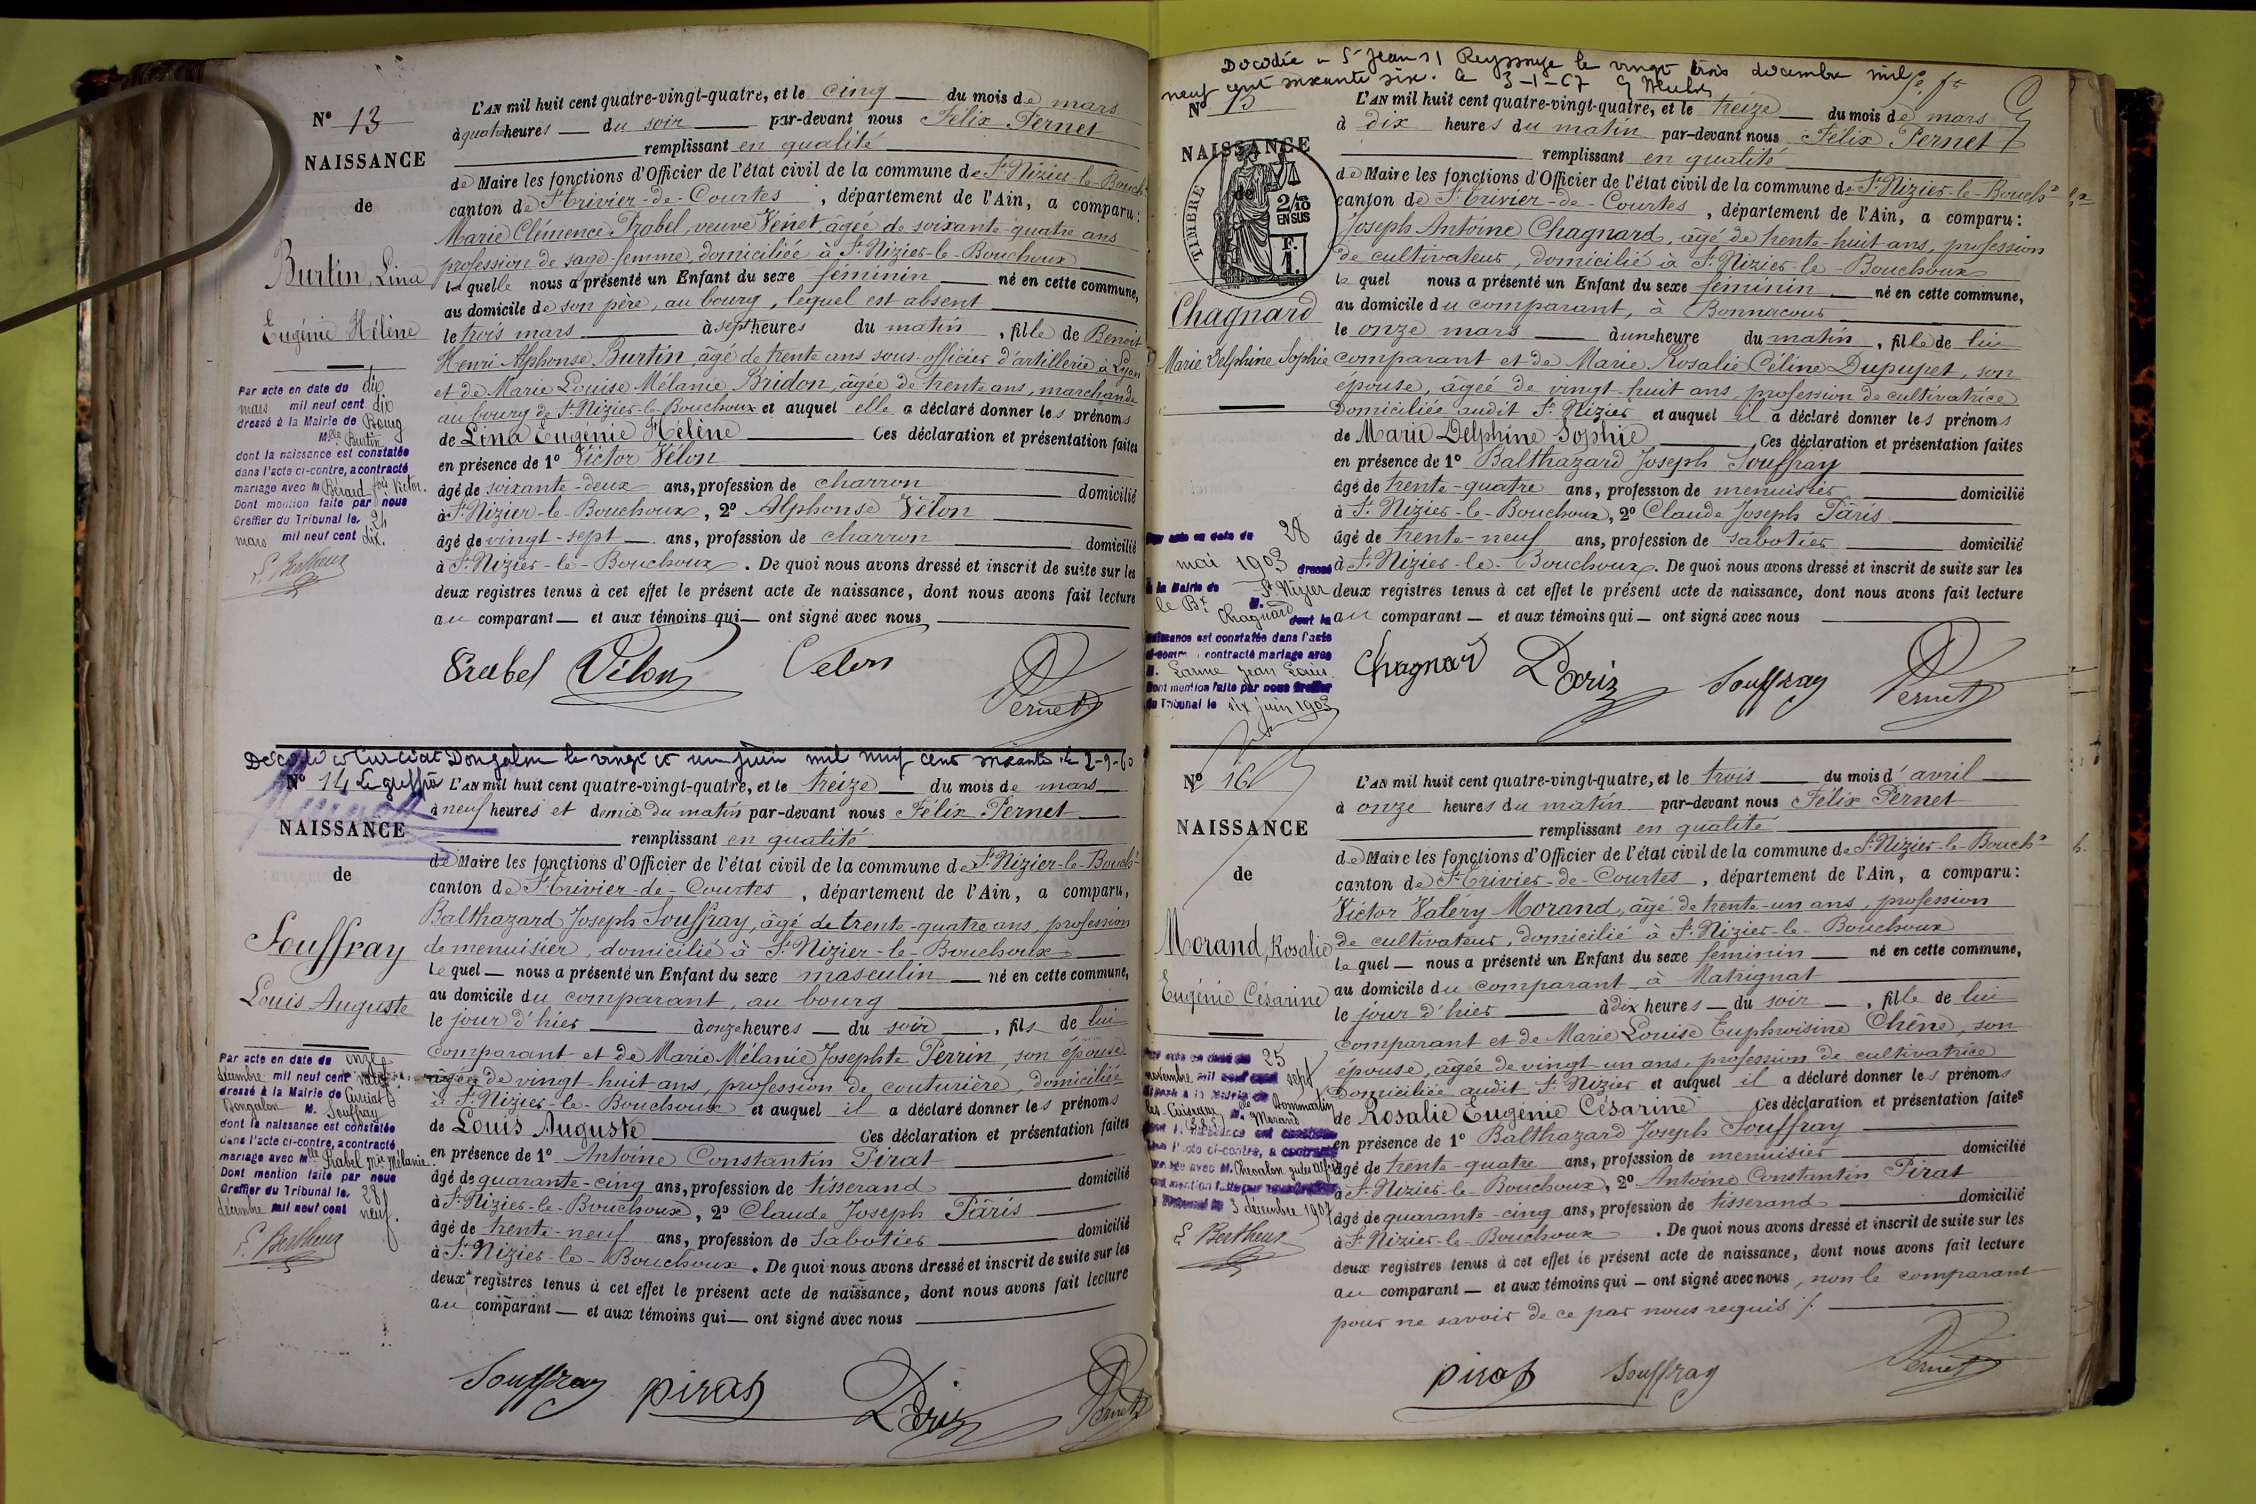 Nº 13
NAISSANCE
de
Burtin, Lina
Eugénie Hélène
Par acte en date du dix
mars mil neuf cent dix
dressé à la Mairie de Bourg
Mlle Burtin
dont la naissance est constatée
dans l'acte ci-contre, a contracté
mariage avec M Bérard Jos Victor.
Dont mention faite par nous
Greffier du Tribunal le 24
mars mil neuf cent dix.
L'AN mil huit cent quatre-vingt-quatre, et le cinq du mois de mars
à quatre heures du soir par-devant nous Félix Pernet
remplissant en qualité
de Maire les fonctions d'Officier de l'état civil de la commune de St Nizier-le-Bouchx
canton de St Trivier-de-Courtes, département de l'Ain, a comparu:
Marie Clémence Prabel, veuve Venet, âgée de soixante-quatre ans
profession de sage-femme, domiciliée à St Nizier-le-Bouchoux
laquelle nous a présenté un Enfant du sexe féminin né en cette commune,
au domicile de son père, au bourg, lequel est absent
le trois mars à sept heures du matin, fille de Benoit
Henri Alphonse Burtin, âgé de trente ans sous-officier d'artillerie à Lyon
et de Marie Louise Mélanie Bridon, âgée de trente ans, marchande
au bourg de St Nizier-le-Bouchoux et auquel elle a déclaré donner les prénoms
de Lina Eugénie Hélène Ces déclaration et présentation faites
en présence de 1º Victor Vélon
âgé de soixante-deux ans, profession de charron domicilié
à St Nizier-le-Bouchoux, 2º Alphonse Vélon
âgé de vingt-sept ans, profession de charron domicilié
à St Nizier-le-Bouchoux. De quoi nous avons dressé et inscrit de suite sur les
deux registres tenus à cet effet le présent acte de naissance, dont nous avons fait lecture
au comparant et aux témoins qui ont signé avec nous
Prabel Vélon Velon Pernet
Décédé à Curciat Dongalon le vingt et un juin mil neuf cent soixante. le 2-9-60
Nº 14 Le greffier
NAISSANCE
de
Souffray
Louis Auguste
Par acte en date du onze
décembre mil neuf cent neuf.
dressé à la Mairie de Curciat
Dongalon M. Souffray
dont la naissance est constatée
dans l'acte ci-contre, a contracté
mariage avec Mlle Prabel Mie Mélanie.
Dont mention faite par nous
Greffier du Tribunal le 28
décembre mil neuf cent neuf.
L'AN mil huit cent quatre-vingt-quatre, et le treize du mois de mars
à neuf heures et demie du matin par-devant nous Félix Pernet
remplissant en qualité
de Maire les fonctions d'Officier de l'état civil de la commune de St Nizier-le-Bouchx
canton de St Trivier-de-Courtes, département de l'Ain, a comparu,
Balthazard Joseph Souffray, âgé de trente-quatre ans, profession
de menuisier, domicilié à St Nizier-le-Bouchoux
lequel nous a présenté un Enfant du sexe masculin né en cette commune,
au domicile du comparant, au bourg
le jour d'hier à onze heures du soir, fils de lui
comparant et de Marie Mélanie Josephte Perrin, son épouse
âgée de vingt-huit ans, profession de couturière, domiciliée
à St Nizier-le-Bouchoux et auquel il a déclaré donner les prénoms
de Louis Auguste Ces déclaration et présentation faites
en présence de 1º Antoine Constantin Pirat
âgé de quarante-cinq ans, profession de tisserand domicilié
à St Nizier-le-Bouchoux, 2º Claude Joseph Pâris
âgé de trente-neuf ans, profession de sabotier domicilié
à St Nizier-le-Bouchoux. De quoi nous avons dressé et inscrit de suite sur les
deux registres tenus à cet effet le présent acte de naissance, dont nous avons fait lecture
au comparant et aux témoins qui ont signé avec nous
Souffray Pirat Pâris Pernet
Décédée à St Jean s/ Reyssouze le vingt trois décembre mil
neuf cent soixante six. le 3-1-67
Nº 15
NAISSANCE
TIMBRE
2/10
EN SUS
F.
1.
Chagnard
Marie Delphine Sophie
Par acte en date du 28
mai 1903 dressé
à la Mairie de St Nizier
le Bx M. Chagnard
dont la
naissance est constatée dans l'acte
ci-contre contracté mariage avec
M. Jean Louis
Dont mention faite par nous Greffier
du Tribunal le six juin 1903
L'AN mil huit cent quatre-vingt-quatre, et le treize du mois de mars
à dix heures du matin par-devant nous Félix Pernet
remplissant en qualité
de Maire les fonctions d'Officier de l'état civil de la commune de St Nizier-le-Bouchx
canton de St Trivier-de-Courtes, département de l'Ain, a comparu:
Joseph Antoine Chagnard, âgé de trente-huit ans, profession
de cultivateur, domicilié à St Nizier-le-Bouchoux
lequel nous a présenté un Enfant du sexe féminin né en cette commune,
au domicile du comparant, à Bonnacour
le onze mars à une heure du matin, fille de lui
comparant et de Marie Rosalie Céline Dupupet, son
épouse, âgée de vingt-huit ans, profession de cultivatrice
domiciliée audit St Nizier et auquel il a déclaré donner les prénoms
de Marie Delphine Sophie Ces déclaration et présentation faites
en présence de 1º Balthazard Joseph Souffray
âgé de trente-quatre ans, profession de menuisier domicilié
à St Nizier-le-Bouchoux, 2º Claude Joseph Pâris
âgé de trente-neuf ans, profession de sabotier domicilié
à St Nizier-le-Bouchoux. De quoi nous avons dressé et inscrit de suite sur les
deux registres tenus à cet effet le présent acte de naissance, dont nous avons fait lecture
au comparant et aux témoins qui ont signé avec nous
Chagnard Pâris Souffray Pernet
Nº 16
NAISSANCE
de
Morand, Rosalie
Eugénie Césarine
25
novembre mil neuf cent sept
Dommartin
les Cuiseaux
Mlle Morand
l'acte ci-contre, a contracté
avec M. Chevalon Jules Alfred
3 décembre 1907
L'AN mil huit cent quatre-vingt-quatre, et le trois du mois d'avril
à onze heures du matin par-devant nous Félix Pernet
remplissant en qualité
de Maire les fonctions d'Officier de l'état civil de la commune de St Nizier-le-Bouchx
canton de St Trivier-de-Courtes, département de l'Ain, a comparu:
Victor Valéry Morand, âgé de trente-un ans, profession
de cultivateur, domicilié à St Nizier-le-Bouchoux
lequel nous a présenté un Enfant du sexe féminin né en cette commune,
au domicile du comparant, à Matrignat
le jour d'hier à dix heures du soir, fille de lui
comparant et de Marie Louise Euphroisine Chêne, son
épouse, âgée de vingt-un ans, profession de cultivatrice
domiciliée audit St Nizier et auquel il a déclaré donner les prénoms
de Rosalie Eugénie Césarine Ces déclaration et présentation faites
en présence de 1º Balthazard Joseph Souffray
âgé de trente-quatre ans, profession de menuisier domicilié
à St Nizier-le-Bouchoux, 2º Antoine Constantin Pirat
âgé de quarante-cinq ans, profession de tisserand domicilié
à St Nizier-le-Bouchoux. De quoi nous avons dressé et inscrit de suite sur les
deux registres tenus à cet effet le présent acte de naissance, dont nous avons fait lecture
au comparant et aux témoins qui ont signé avec nous, non le comparant
pour ne savoir de ce par nous requis
Pirat Souffray Pernet